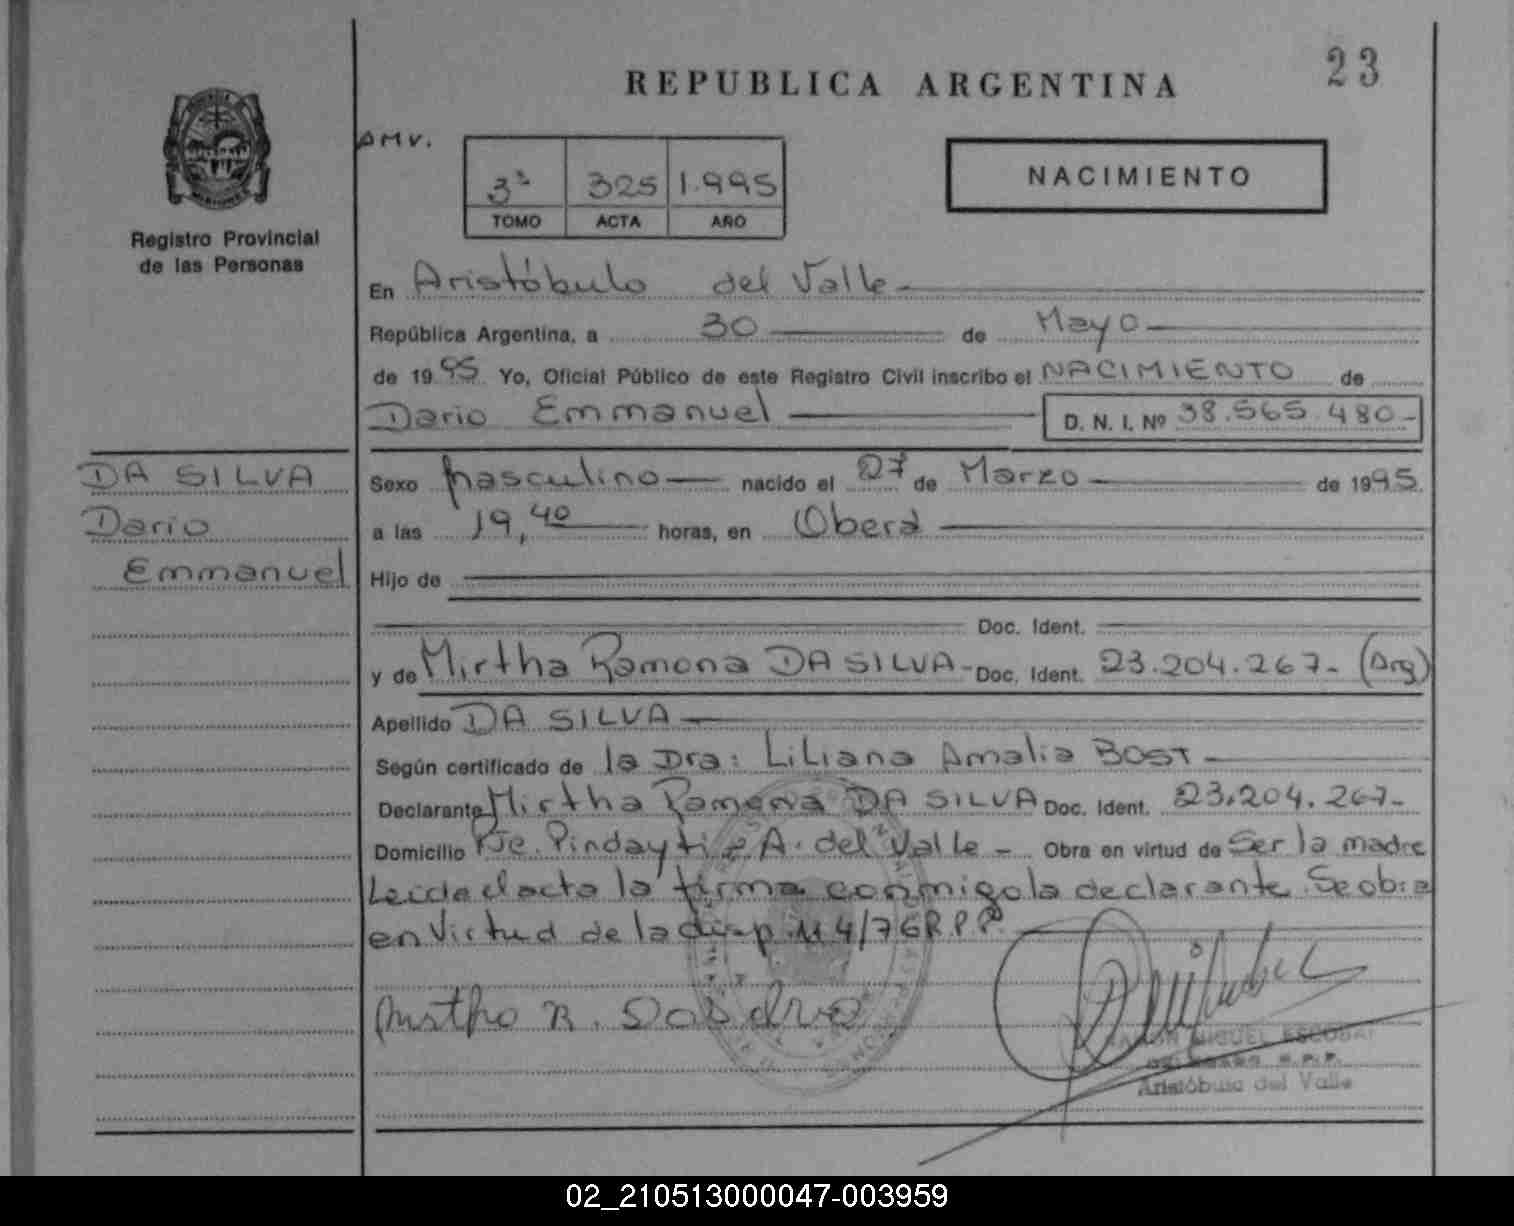 23
REPUBLICA ARGENTINA
AMV.
3ª 325 1.995
TOMO ACTA AÑO
NACIMIENTO
Registro Provincial
de las Personas
En Aristóbulo del Valle
República Argentina, a 30 de Mayo
de 1995 Yo, Oficial Público de este Registro Civil inscribo el NACIMIENTO de
Dario Emmanuel D. N. I. Nº 38.565.480-
DA SILVA
Dario
Emmanuel
Sexo Masculino nacido el 27 de Marzo de 1995.
a las 19,40 horas, en Oberá
Hijo de
Doc. Ident.
y de Mirtha Ramona DA SILVA- Doc. Ident. 23.204.267- (Arg)
Apellido DA SILVA
Según certificado de la Dra: Liliana Amalia BOST
Declarante Mirtha Ramona DA SILVA Doc. Ident. 23.204.267-
Domicilio Pje. Pindayti A. del Valle - Obra en virtud de Ser la madre
Leida el acta la firma conmigo la declarante. Se obra
en Virtud de la disp. 114/76 R.P.P.
Mirtha R. Da Silva
RAMON MIGUEL ESCOBAR
R.P.P.
Aristóbulo del Valle
02_210513000047-003959